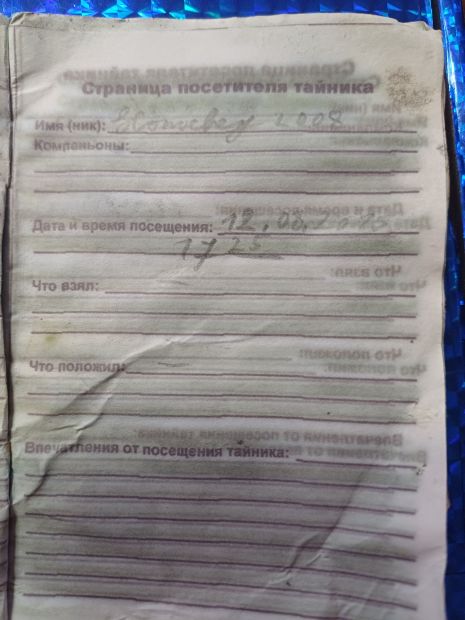 Страница посетителя тайника
Имя (ник): 2008
Компаньоны:
Дата и время посещения: 12.
Что взял:
Что положил:
Впечатления от посещения тайника: